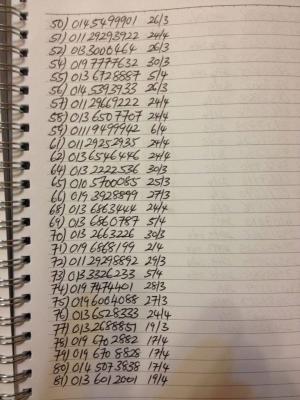 50) 0145499901 26/3
51) 01129293922 24/4
52) 0133000464 26/3
54) 0197777632 30/3
55) 0136728887 5/4
56) 0145393933 26/3
57) 01129669222 24/4
58) 0136507707 24/4
59) 01119499942 6/4
61) 01129252935 24/4
62) 0136546446 24/4
64) 0132222536 30/3
65) 0105700085 25/3
66) 0193928899 27/3
68) 0136863444 24/4
69) 0136860787 5/4
70) 0132663226 30/3
71) 0196868199 2/4
72) 01129298892 29/3
73) 0133326233 5/4
74) 0197474401 28/3
75) 0196004088 27/3
76) 0136528333 24/4
77) 0132688851 19/3
78) 0196702882 17/4
79) 0196708828 17/4
80) 0145073838 17/4
81) 0136012001 19/4